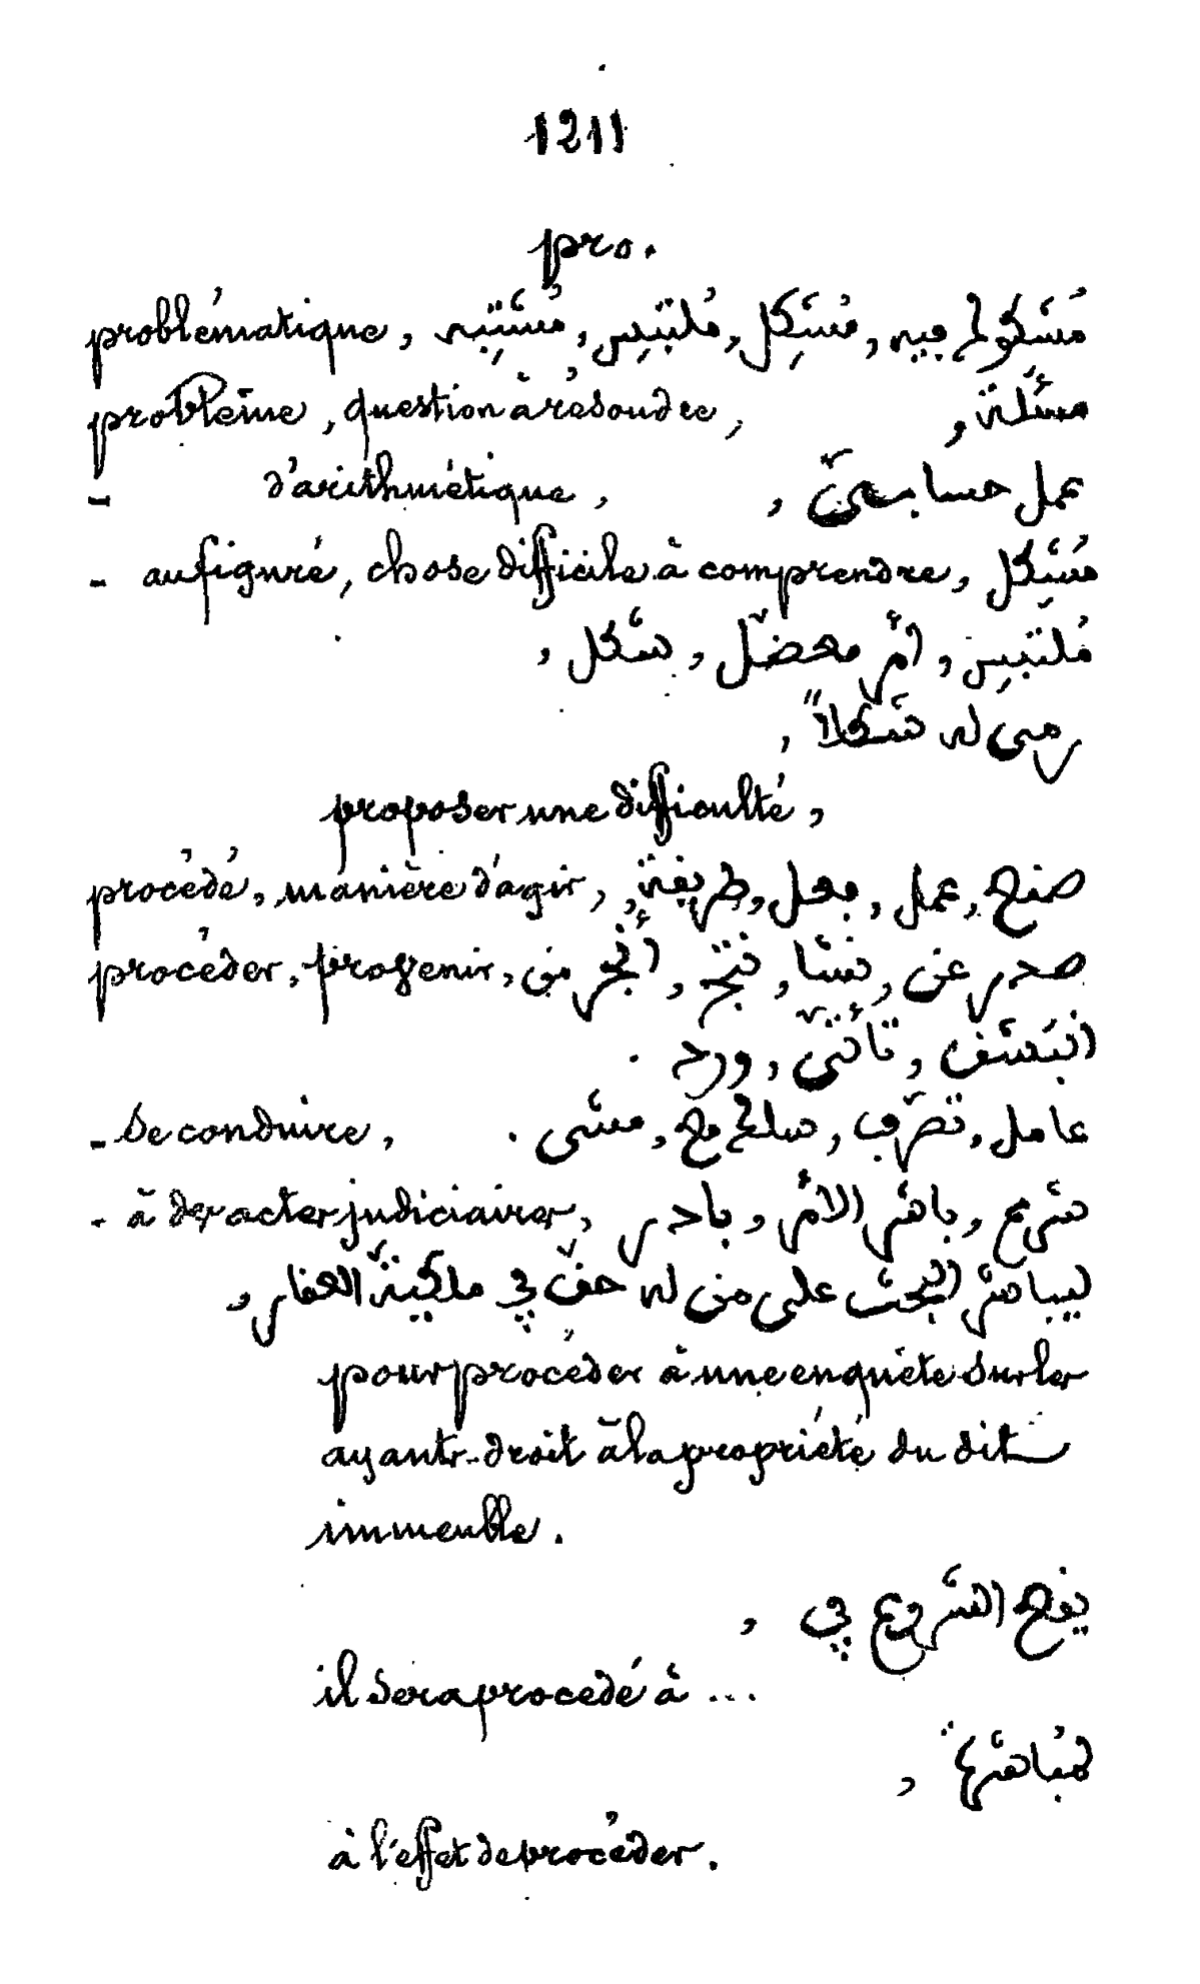 1211
pro.
problématique, مُشْتَبِه, مُلتَبِس, مُشْكِل, مَشْكوك فيه
problème, question à résoudre, مسئلة,
- d'arithmétique, عمل حسابيّ,
- au figuré, chose difficile à comprendre, مُشْكِل
مُلتَبِس, أمر معضل, شكل,
رمى له شكلاً,
proposer une difficulté,
procédé, manière d'agir, صنع, عمل, فعل, طريقة,
procéder, provenir, صدر عن, نشا, نتج, أنجر من
تأتّى, ورد.
- se conduire, عامل, تصرّف, سلك مع, مشى.
- à des actes judiciaires, شرع, باشر الأمر, بادر
ليباشر البحث على من له حقّ في ملكيّة العقار,
pour procéder à une enquête sur les
ayants-droit à la propriété du dit
immeuble.
يقع الشروع في,
il sera procédé à ...
لمُباشرة,
à l'effet de procéder.